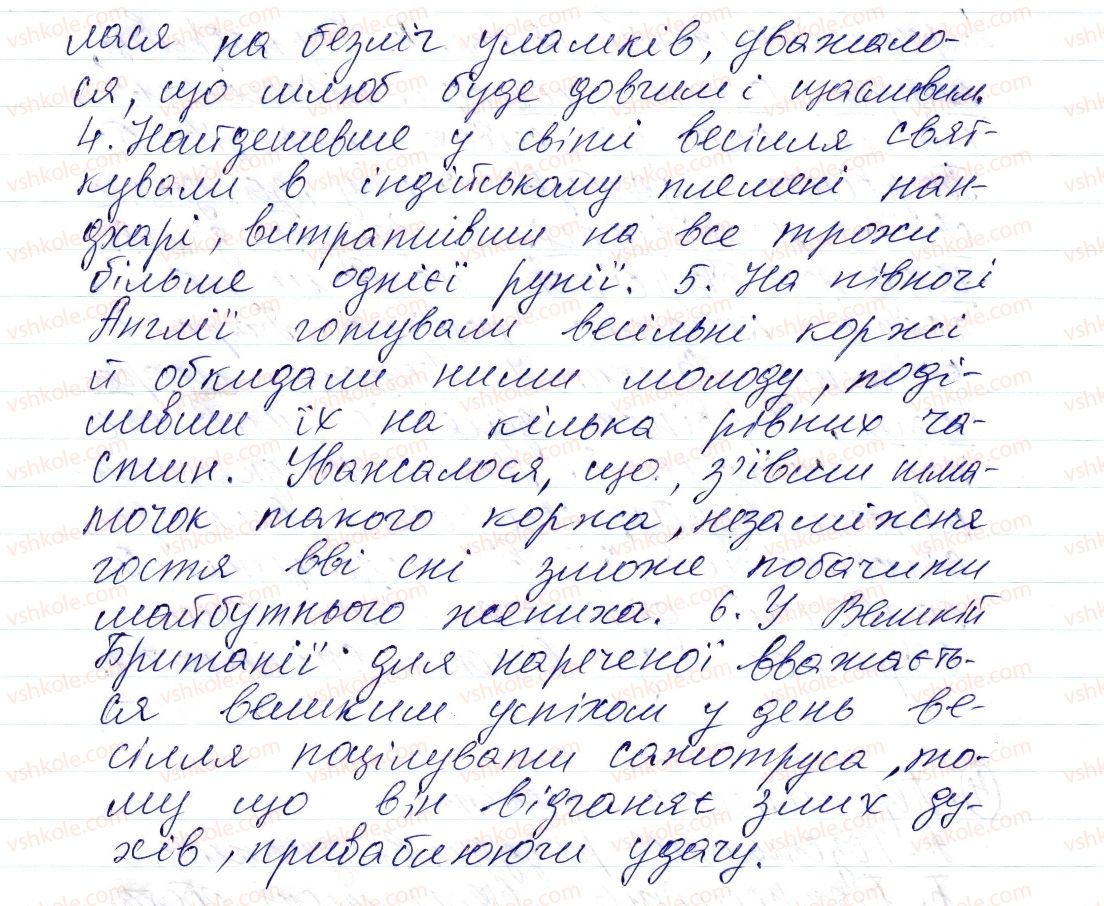 лася на безліч уламків, уважало-
ся, що шлюб буде довгим і щасливим.
4. Найдешевше у світі весілля свят-
кували в індійському племені нан-
джарі, витративши на все трохи
більше однієї рупії. 5. На півночі
Англії готували весільні коржі
й обкидали ними молоду, поді-
ливши їх на кілька рівних ча-
стин. Уважалося, що, з'ївши шма-
точок такого коржа, незаміжня
гостя вві сні зможе побачити
майбутнього жениха. 6. У Великій
Британії для нареченої вважаєть-
ся великим успіхом у день ве-
сілля поцілувати сажотруса, то-
му що він відганяє злих ду-
хів, приваблюючи удачу.